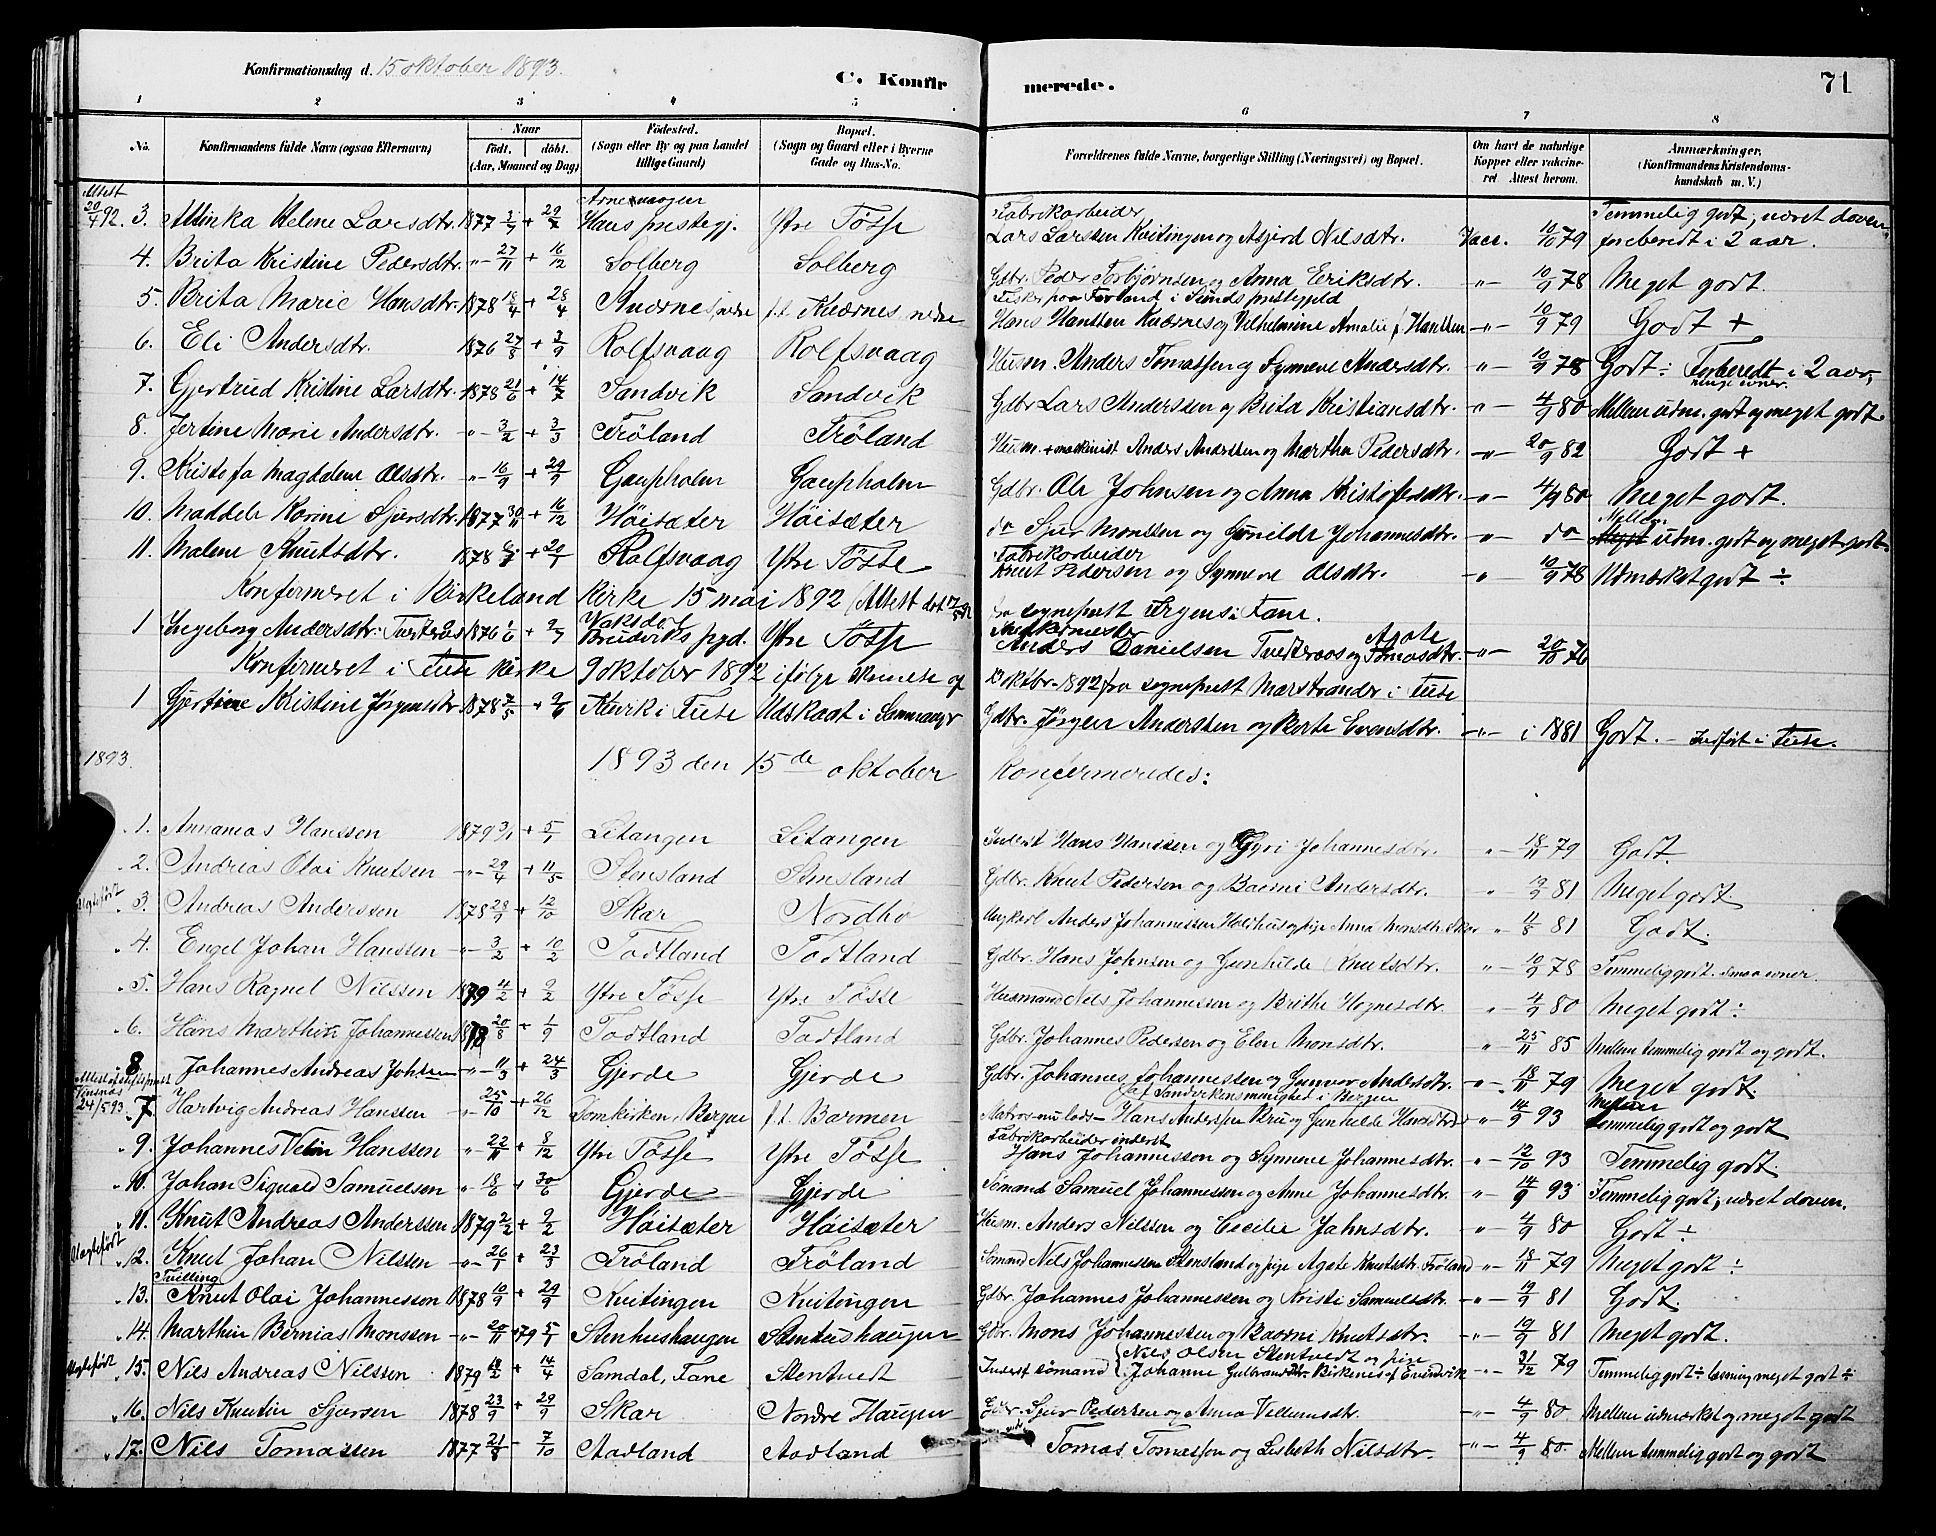 Konfirmationsdag d. 15 oktober 1893.
C. Konfir merede. 71
1 2 3 4 5 6 7 8
No. Konfirmandens fulde Navn (ogsaa Efternavn) Naar født, døbt. (Aar, Maaned og Dag) Fødested. (Sogn eller By og paa Landet tillige Gaard) Bopæl. (Sogn og Gaard eller i Byerne Gade og Hus-No. Forældrenes fulde Navne, borgerlige Stilling (Næringsvei) og Bopæl. Om havt de naturlige Kopper eller vaccineret Attest herom. Anmærkninger. (Konfirmandens Kristendomskundskab m. V.)
Attest 20/4 92. 3. Minka Helene Larsdtr. 1877 + 29/7 Arnevaagen Hans prestegj. Ytre Tösse Fabrikarbeider Lars Larssen Kvitingen og Asjerd Nilsdtr. Vacc. 10/10 79 Temmelig godt, været doven, forberedt i 2 aar.
4. Brita Kristine Pedersdtr. "- 27/11 + 16/12 Solberg Solberg Gdbr. Peder Torbjørnsen og Anna Eriksdtr. -"- 10/9 78 Meget godt.
5. Brita Marie Hansdtr. 1878 18/4 + 28/4 Kværnes, nedre f.t. Kværnes, nedre Fisker paa Forland i Sunds prestegjeld Hans Hanssen Kværnes og Vilhelmine Amalie f. Hanssen -"- 10/9 79 Godt +
6. Eli Andersdtr. 1876 27/8 + 3/9 Rolfsvaag Rolfsvaag Husm. Anders Tomassen og Synneve Andersdtr. -"- 10/9 78 Godt ÷ Forberedt i 2 aar, ringe evner.
7. Gjertrud Kristine Larsdtr. 1878 21/6 + 14/7 Sandvik Sandvik Gdbr Lars Anderssen og Brita Kristiansdtr. " - 4/9 80 Mellem udm. godt og meget godt.
8. Jertine Marie Andersdtr. "- 3/2 + 3/3 Tröland Tröland Husm. + maskinist Anders Anderssen og Martha Pedersdtr. -"- 20/9 82 Godt +
9. Kristofa Magdelene Olsdtr. "- 16/9 + 29/9 Gaupholm Gaupholm Gdbr. Ole Johnsen og Anna Kristofersdtr. -"- 4/9 80 Meget godt.
10. Maddele Karine Sjursdtr. 1877 30/11 + 16/12 Höisæter Höisæter do Sjur Monssen og Gunilde Johannesdtr. -"- do Mellem udm. godt og meget godt.
11. Malene Knutsdtr. 1878 + 20/1 Rolfsvaag Ytre Tösse Fabrikarbeider Knut Pedersen og Synneve Olsdtr. -"- 10/9 78 Udmærket godt ÷
Konfirmeret i Birkeland Kirke 15 mai 1892 (Attest dat. fra sogneprest Jrgens i Fane.
1 Ingeborg Andersdtr. Tvetteraas 1876 1/6 + 9/7 Vaksdal Bruviks pgd. Ytre Tösse Anders Danielsen Tvetteraas og Agate Tomasdtr. -"- 20/10 76
Konfirmeret i Fuse kirke 9 oktober 1892 ifølge skrivelse af oktbr. 1892 fra sogneprest Marstrander i Fuse
1 Gjertine Kristine Jörgensdtr. 1878 7/5 + 9/6 i Fuse Udskaat i Sammanger Gdbr. Jörgen Anderssen og Berte Evensdtr. -"- i 1881 Godt. - Indført i Fuse.
1893. 1893 den 15de oktober Konfermeredes:
1. Annanias Hanssen 1879 3/1 + 5/1 Letangen Letangen Inderst Hans Hanssen og Gyri Johannesdtr. "- 18/11 79 Godt.
2. Andreas Olai Knutsen "- 29/4 + 11/5 Stensland Stensland Gdbr. Knut Pedersen og Baarni Andersdtr. " - 19/9 81 Meget godt
Uægtefödt 3. Andreas Anderssen 1878 28/9 + 12/10 Skar Nordbø Ungkarl Anders Johannessen Holdhus og pige Anna Monsdtr. Skar " 11/8 81 Godt.
4. Engel Johan Hanssen "- 3/2 + 10/2 Tadtland Tadtland Gdbr. Hans Johnsen og Gunhilde Knutsdtr. " - 10/9 78 Temmelig godt. smaa evner.
5. Hans Ragnel Nilssen 1879 4/2 + 9/2 Ytre Tösse Ytre Tösse Husmand Nils Johannessen og Brithe Hognesdtr. " - 4/9 80 Meget godt ÷
6. Hans Marthin Johannessen 1878 20/8 + 1/9 Tadtland Tadtland Gdbr. Johannes Pedersen og Elen Monsdtr. " 25/11 85 Mellem temmelig godt og godt.
8. Johannes Andreas Johssen "- 11/3 + 24/3 Gjerde Gjerde Gdbr. Johannes Johannessen og Gunvor Andersdtr. "- 18/11 79 Meget godt.
Attest af stiftsprest 24/5 93. 7. Hartvig Andreas Hanssen " 25/10 + 26/12 Domkirken, Bergen f.t. Barmen Matros nu lods - Hans Anderssen Bru og Gunhilde Hansdtr af Sandvikens menighed i Bergen " 14/9 93 Mellem temmelig godt og godt
9. Johannes Velin Hanssen "- 22/11 + 8/12 Ytre Tösse Ytre Tösse Fabrikarbeider inderst Hans Johannesson og Synneve Johannesdtr. " - 12/10 93 Temmelig godt.
10. Johan Sigvald Samuelsen " 18/6 + 30/6 Gjerde Gjerde Sömand Samuel Johannessen og Anne Johannesdtr. " - 14/9 93 Temmelig godt; været doven.
11. Knut Andreas Anderssen 1879 2/2 + 9/2 Höisæter Höisæter Husm. Anders Nilssen og Cecilie Jahnsdtr. " 4/9 80 Godt ÷
Uægtefödt 12. Knut Johan Nilssen "- 26/1 + 23/3 Tröland Tröland Sömand Nils Johannessen Stensland og pige Agate Knutsdtr. Tröland -"- 18/11 79 Meget godt ÷
13. Tvilling Knut Olai Johannessen 1878 10/9 + 29/9 Kvitingen Kvitingen Gdbr. Johannes Johannessen og Kristi Samuelsdtr. -"- 19/9 81 Godt.
14. Marthin Bernias Monssen -"- 20/11 + 79 5/1 Stenhushaugen Stenhushaugen Gdbr. Mons Johannessen og Baarni Knutsdtr. -"- 19/9 81 Meget godt.
Uægtefödt 15. Nils Andreas Nilssen 1879 18/2 + 14/4 Samdal, Fane Stentvedt Inderst sömand Nils Olsen Stentvedt og pige Johanne Gulbrandsdtr. Birkenes af Evindvik -"- 31/12 79 Temmelig godt ÷ læsning meget godt ÷
16. Nils Knutin Sjursen 1878 23/9 + 29/9 Skar Nordre Haugen Gdbr. Sjur Pedersen og Anna Villumsdtr. -"- 4/9 80 Mellem udmærket og meget godt
17. Nils Tomassen 1877 21/8 - 7/10 Aadland Aadland Tomas Tomassen og Lisbeth Nilsdtr. -"- 4/9 80 Mellem temmelig godt og godt